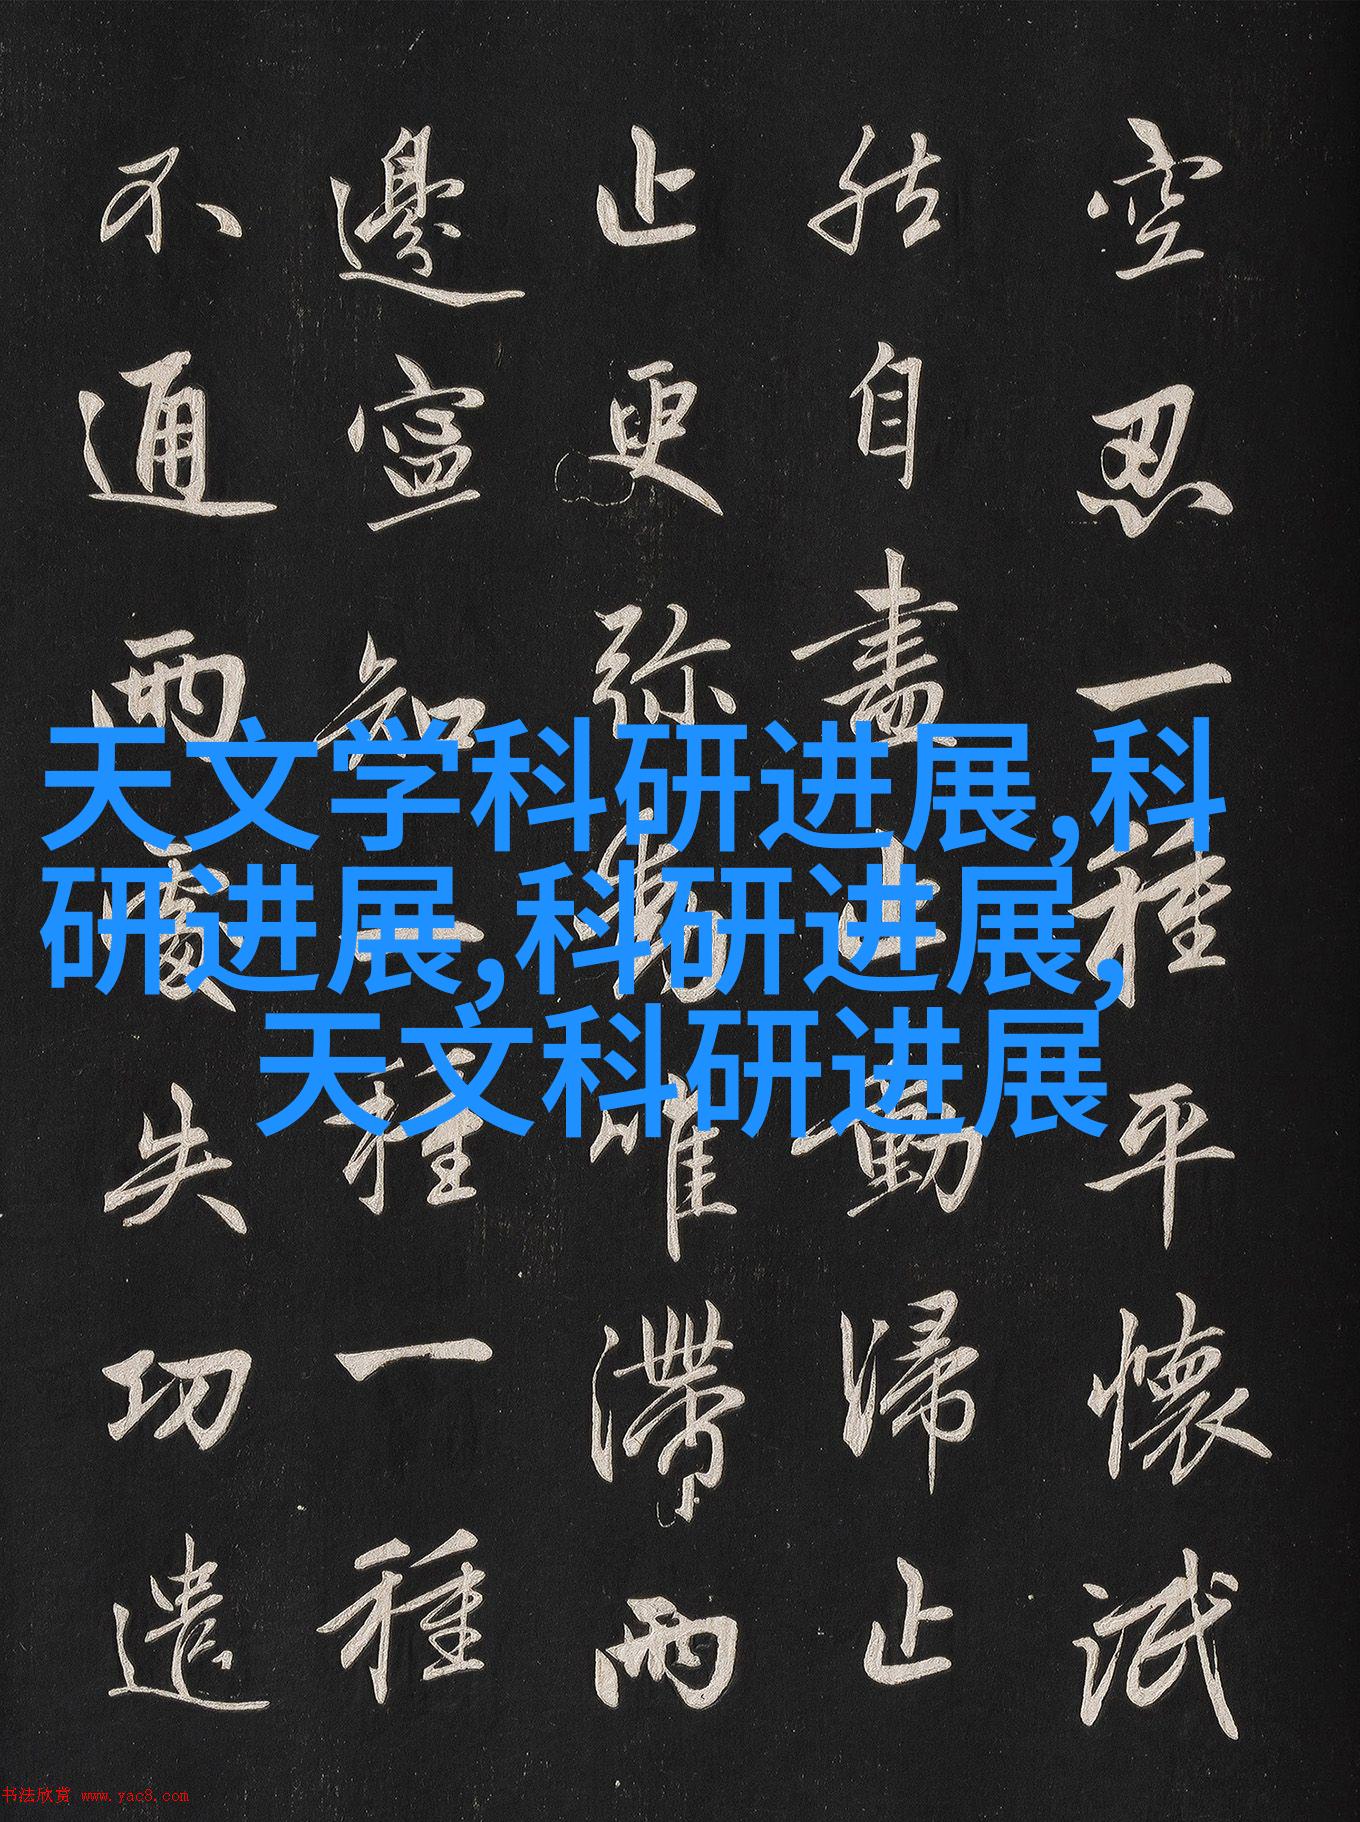 空忍一種平懷泯
然自盡止動歸止
止更弥動唯滯兩
邊寧知一種一種
不通兩處失功遣
天文学科研进展,科
研进展,科研进展,
天文科研进展
书法欣赏 www.yac8.com